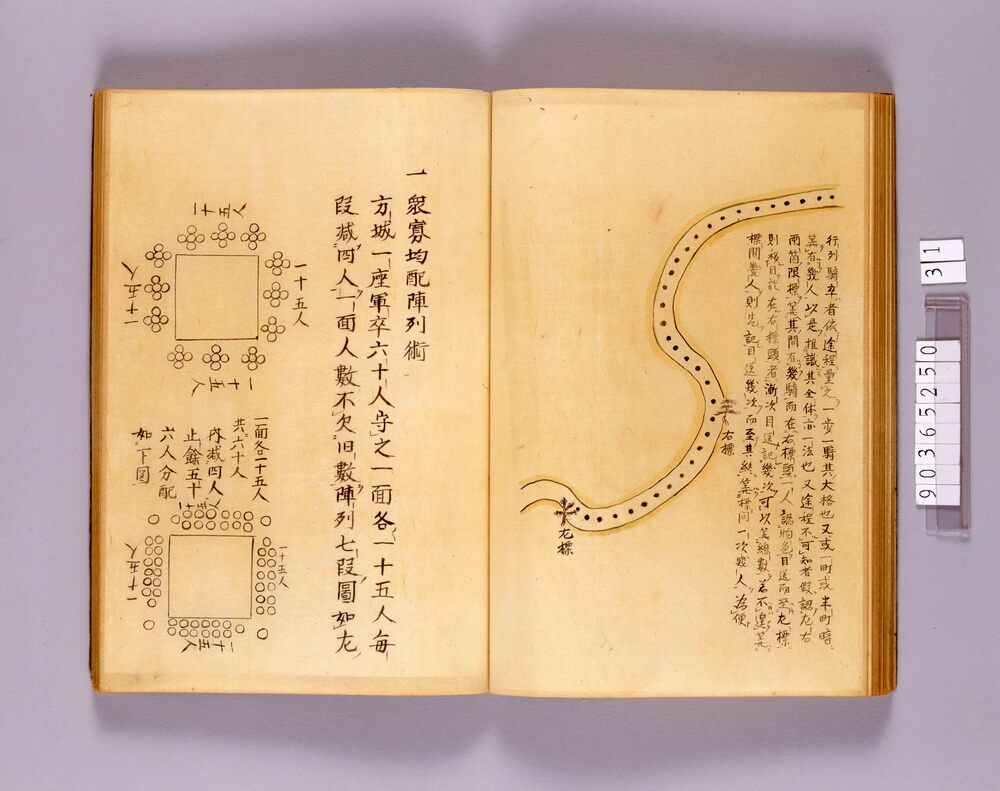 行列騎卒者依途程量之一歩一騎其大格也又或一町或半町暗
算有幾人以是推識其全体亦一法也又途程不可知者假認左右
兩箇限標算其間有幾騎而在右標頭一人認物色目送而至左標
則後目記在右標頭者漸次目送記幾次可以算總數若不遑算
標間幾人則先記目送幾次而至其終算標间一次幾人為便
右標
左標
一 衆寡均配陣列術
方城一座軍卒六十人守之一面各一十五人毎
段減四人一面人數不欠旧數陣列七段圖如左
一十五人
一十五人
一十五人
一十五人
一面各一十五人
共六十人
内減四人
止餘五十
六人分配
如下図
一十五人
一十五人
一十五人
一十五人
31
9036525 0